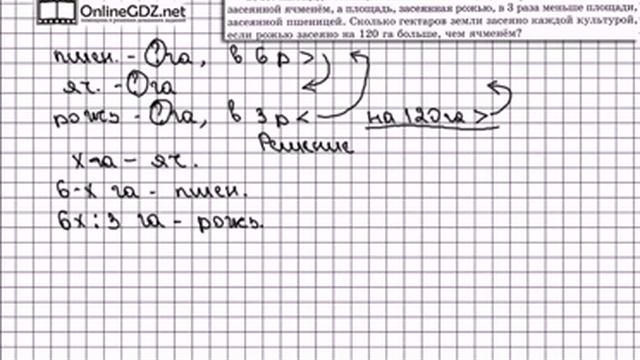 OnlineGDZ.net
засеянной ячменём, а площадь, засеянная рожью, в 3 раза меньше площади,
засеянной пшеницей. Сколько гектаров земли засеяно каждой культурой,
если рожью засеяно на 120 га больше, чем ячменём?
пшен. - Ога, в 6 р >
яч. - Ога
рожь - Ога, в 3 р < на 120 га >
Решение
х га - яч.
6·х га - пшен.
6х : 3 га - рожь.